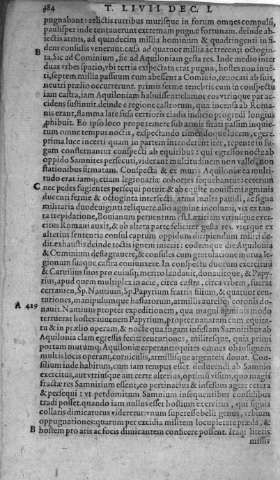 484 T. LIVII DEC. I.
pugnabant: relictis ruribus murisque in forum omnes compulsi,
paulisper inde tentauerunt extremam pugnæ fortunam. deinde ab-
iectis armis, ad quindecim millia hominum & quadringenti in fi-
dem consulis venerunt. cæsa ad quatuor millia & trecenti octogin-
B ta. Sic ad Cominium, sic ad Aquiloniam gesta res. Inde medio inter
duas vrbes spatio, vbi tertia expectata erat pugna, hostes non inuen-
ti, septem millia passuum cum abessent à Cominio, reuocati ab suis,
neutri prælio occurrerunt. primis ferme tenebris cum in conspectu
iam castra, iam Aquiloniam habuissent, clamor eos vtrinque par ac-
cidens sustinuit. deinde è regione castrorum, quæ incensa ab Roma-
nis erant, flamma late fusa certioris cladis indicio progredi longius
prohibuit. Eo ipso loco per
omne tempus noctis, expectando timendoque lucem,
prima luce incerti quam in partem intenderent iter, repente in fu-
gam consternantur conspecti ab equitibus: qui egressos nocte ab
oppido Samnites persecuti, viderant multitudinem non vallo, non
stationibus firmatam. Conspecta & ex muris Aquiloniæ ea multi-
tudo erat iamque etiam legionariæ cohortes sequebantur. ceterum
C nec pedes fugientes persequi potuit: & ab equite nouissimi agminis
ducenti ferme & octoginta interfecti. arma multa pauidi,
militaria duodeuiginti reliquere. alio agmine incolumi, vt ex tan-
ta trepidatione, Bouianum peruentum est. Lætitiam vtriusque exer-
citus Romani auxit, & ab altera parte feliciter gesta res. vterque ex
alterius sententia consul captum oppidum diripiendum militi de-
dit. exhaustis deinde tectis ignem iniecit: eodemque die Aquilonia
& Cominium deflagrauere, & consules cum gratulatione mutua le-
gionum suaque castra coniunxere. In conspectu duorum exercituum
& Caruilius suos pro cuiusque merito laudauit, donauitque, & Papy-
rius, apud quem multiplex in acie, circa castra, circa vrbem, fuerat
certamen, Sp. Nautium, Sp. Papyrium fratris filium, & quatuor cen-
turiones, manipulumque hastatorum, armillis aureisque coronis do-
A 429 nauit. Nautium propter expeditionem, qua magni agminis modo
terruerat hostes iuuenem Papyrium, propter nauatam cum equita-
tu & in prælio operam, & nocte qua fugam infestam Samnitibus ab
Aquilonia clam egressis fecit centuriones, militesque, quia primi
portam murumque Aquiloniæ ceperant. equites omnes ob insignem
multis locis operam, corniculis, armillisque argenteis donat. Con-
silium inde habitum, cum iam tempus esset deducendi ab Samnio
exercitus, aut vtriusque aut certe alterius, optimum visum, quo magis
fractæ res Samnitium essent, eo pertinacius & infestius agere cetera
& persequi: vt perdomitum Samnium insequentibus consulibus
tradi posset. quando iam nullus esset hostium exercitus, qui signis
collatis dimicaturus videretur: vnum superesse belli genus, vrbium
B oppugnationes: quarum per excidia militem locupletare præda, &
hostem pro aris ac focis dimicantem conficere possent. itaque literis
missis